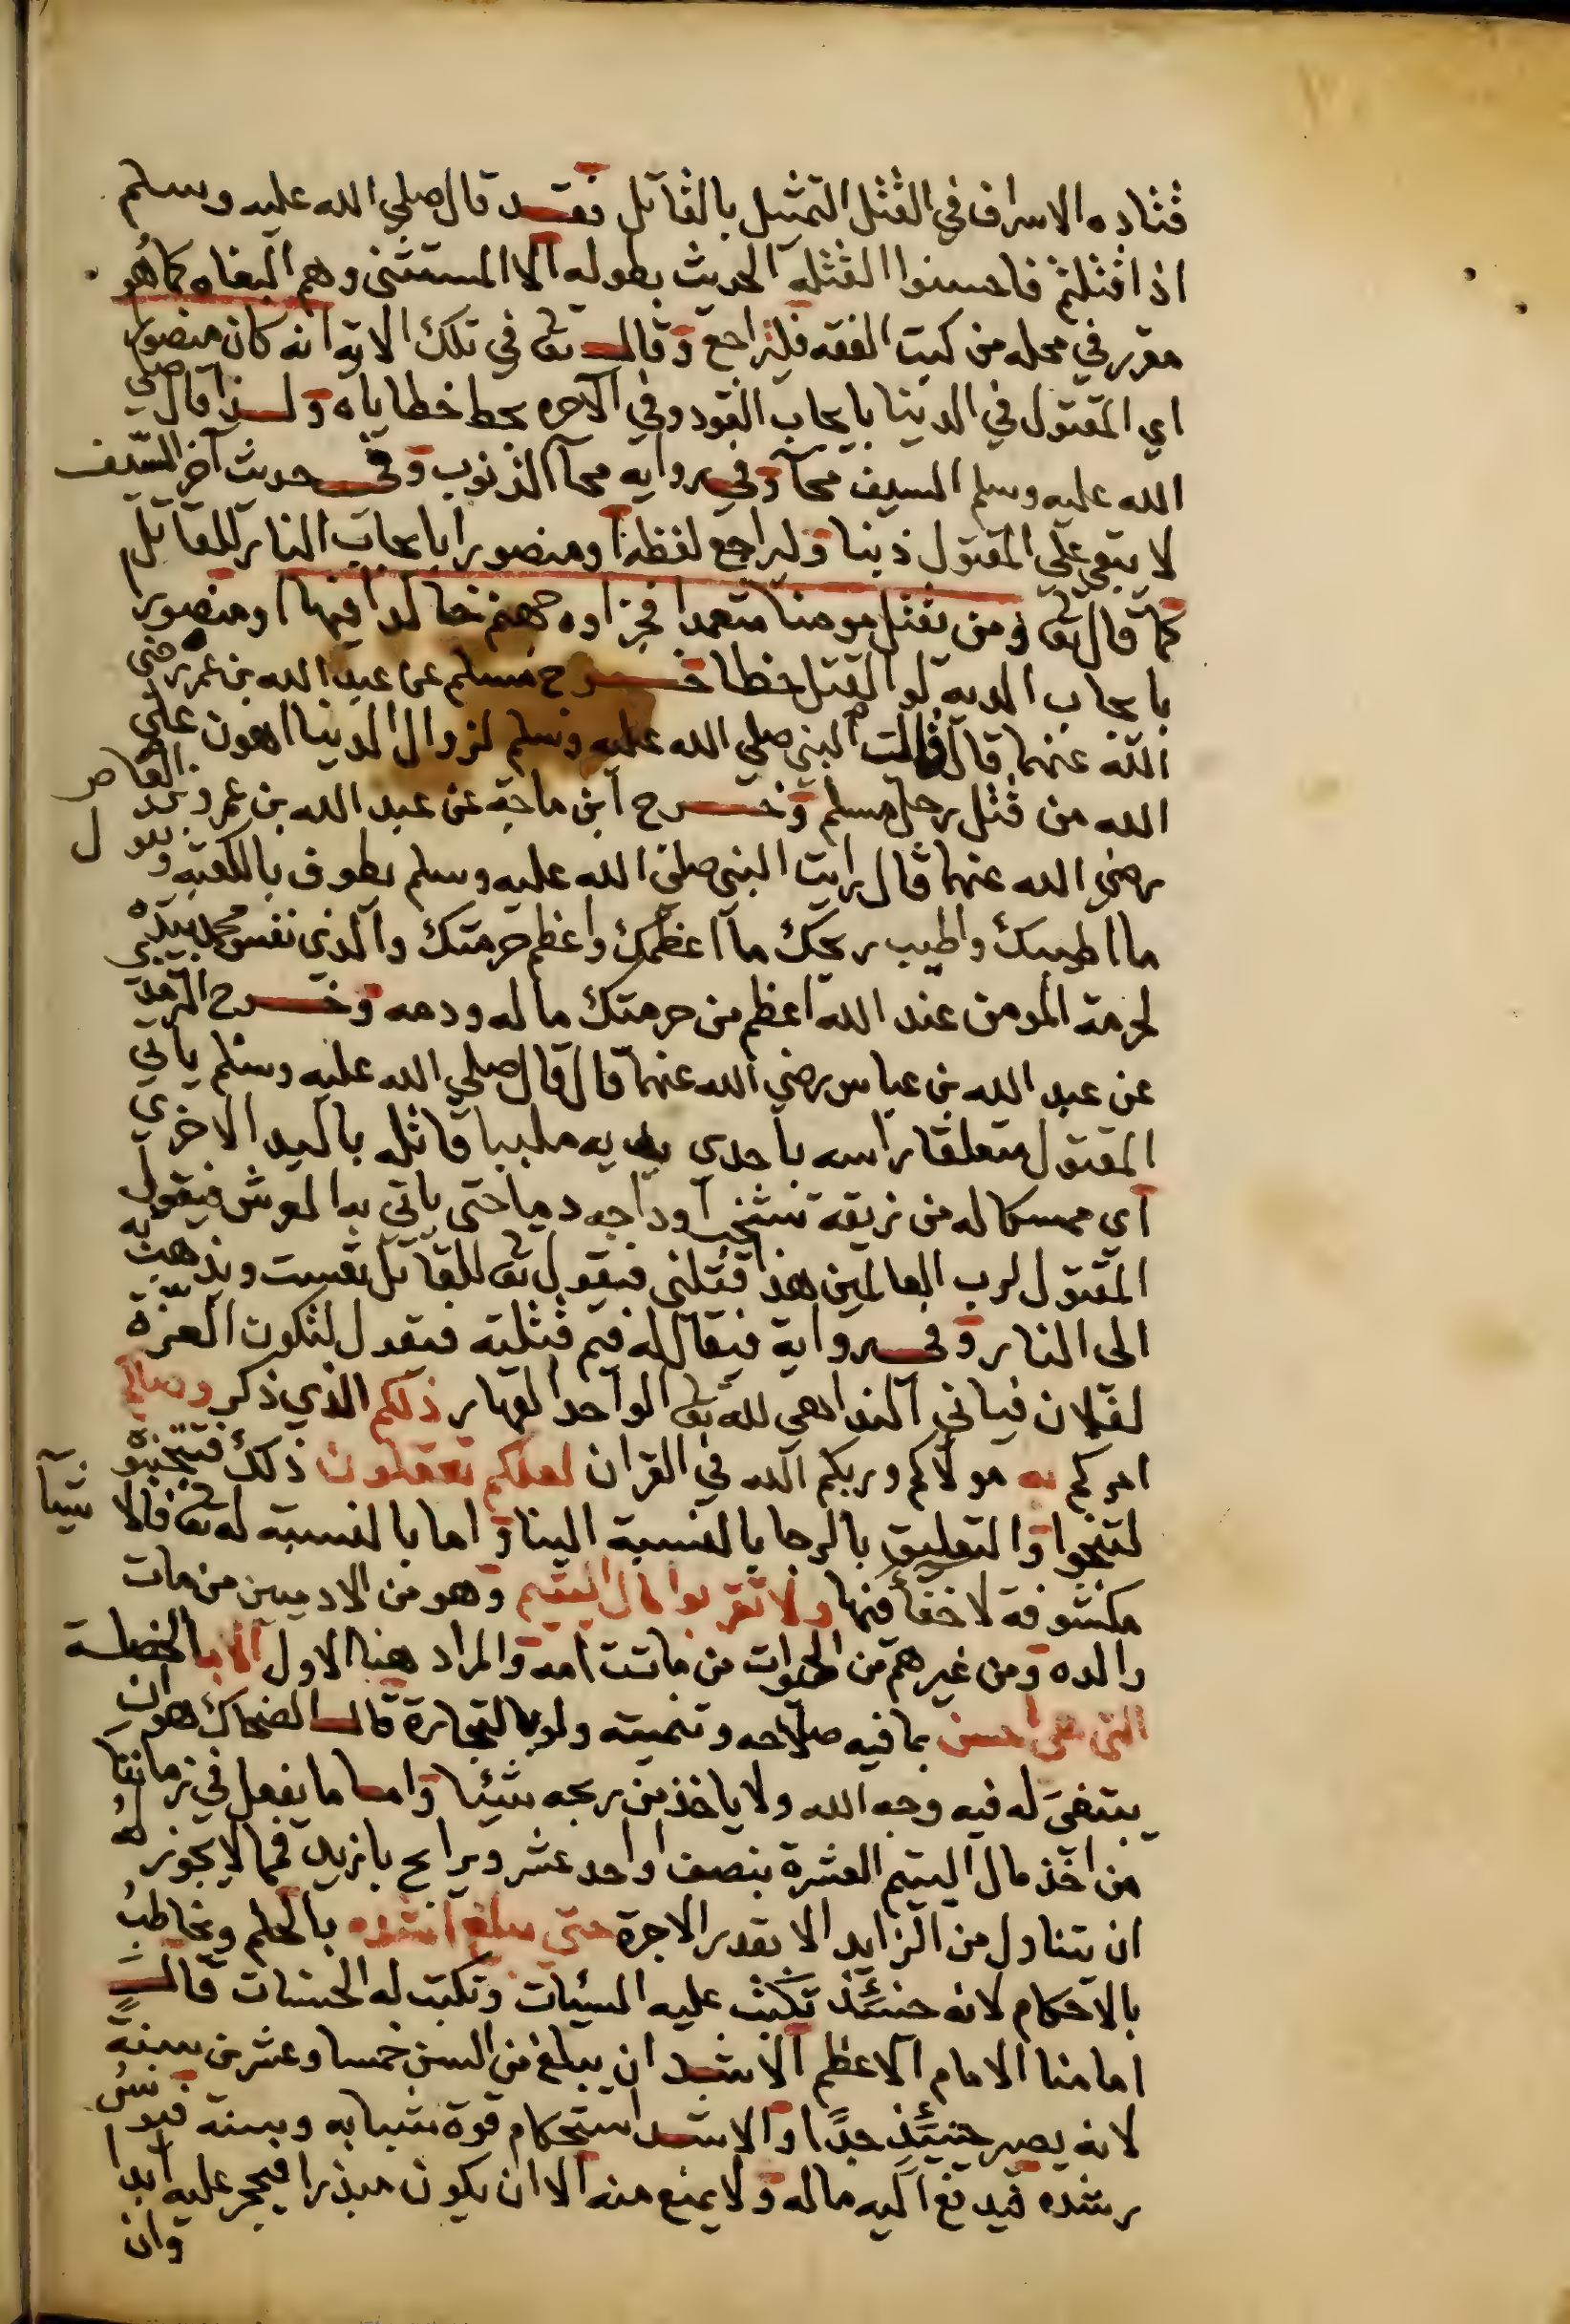 قتاده الاسراف في القتل التمثيل بالقاتل فقد قال صلي الله عليه وسلم
اذا قتلتم فاحسنوا القتله الحديث بطوله الا المستثنى وهم البغاه كما هو
مقرر في محله من كتب الفقه فليراجع وقال تع في تلك الايه انه كان منصورا
اي المقتول في الدينا بايجاب القود وفي الآخره بحط خطاياه ولذا قال صلي
الله عليه وسلم السيف محآ وفي روايه محآ الذنوب وفي حديث آخر السيف
لا يبقي علي المقتول ذنبا وليراجع لفظه او منصورا بايجاب النار للقاتل
كما قال تع ومن يقتل مومنا متعمدا فجزاوه جهنم خالدا فيها او منصورا
بايجاب الديه لو القتل خطا خرج مسلم عن عبد الله بن عمر رضي
الله عنهما قال قال النبي صلي الله عليه وسلم لزوال الدينا اهون علي
الله من قتل رجل مسلم وخرج ابن ماجه عن عبد الله بن عمرو بن العاص
رضي الله عنهما قال رايت النبي صلي الله عليه وسلم يطوف بالكعبه ويقول
ما اطيبك واطيب ريحك ما اعظمك واعظم حرمتك والذي نفس محمد بيده
لحرمة المومن عند الله اعظم من حرمتك ماله ودمه وخرج الترمذي
عن عبد الله بن عباس رضي الله عنهما قال قال صلي الله عليه وسلم ياتي
المقتول متعلقا راسه باحدي يديه ملببا قاتله باليد الاخري
اي ممسكا له من زيقه تشخب اوداجه دما حتى ياتي به العرش فيقول
المقتول لرب العالمين هذا قتلني فيقول تع للقاتل تعست ويذهب به
الى النار وفي رواية فيقال له فيم قتلته فيقول لتكون العزة
لفلان فياتي الندا هي لله تع الواحد القهار ذلكم الذي ذكر وصاكم
امركم به مولاكم وربكم الله في القران لعلكم تعقلون ذلك فتجتنبوه
لتنجوا والتعليق بالرجا بالنسبة الينا واما بالنسبته له تع فالاشيآ
مكشوفة لا خفآ فيها ولا تقربوا مال اليتيم وهو من الادميين من مات
والده ومن غيرهم من الحيوات من ماتت امه والمراد هنا الاول الا بالخصلة
التي هي احسن بما فيه صلاحه وتنميته ولو بالتجارة قال الضحاك هو ان
يبتغى له فيه وجه الله ولا ياخذ من ربحه شيئا واما ما يفعل في زماننا
من اخذ مال اليتيم العشرة بنصف او احد عشر ويرابح بازيد فمما لا يجوز له
ان يتناول من الزايد الا بقدر الاجرة حتى يبلغ اشده بالحلم ويخاطب
بالاحكام لانه حينئذ تكتب عليه السيئات وتكتب له الحسنات قال
امامنا الامام الاعظم الاشد ان يبلغ من السن خمسا وعشرين سنة
لانه يصير حينئذ جدًا والاشد استحكام قوة شبابه وسنه فيونس
رشده فيدفع اليه ماله ولا يمنع منه الا ان يكون مبذرا فيحجر عليه ابدا
وان